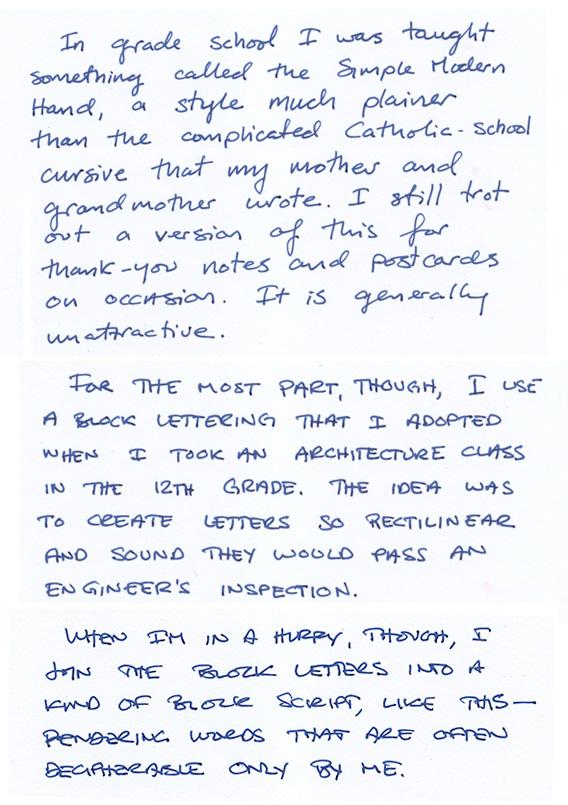 In grade school I was taught
something called the Simple Modern
Hand, a style much plainer
than the complicated Catholic-school
cursive that my mother and
grandmother wrote. I still trot
out a version of this for
thank-you notes and postcards
on occasion. It is generally
unattractive.
FOR THE MOST PART, THOUGH, I USE
A BLOCK LETTERING THAT I ADOPTED
WHEN I TOOK AN ARCHITECTURE CLASS
IN THE 12TH GRADE. THE IDEA WAS
TO CREATE LETTERS SO RECTILINEAR
AND SOUND THEY WOULD PASS AN
ENGINEER'S INSPECTION.
WHEN I'M IN A HURRY, THOUGH, I
JOIN THE BLOCK LETTERS INTO A
KIND OF BLOCK SCRIPT, LIKE THIS—
RENDERING WORDS THAT ARE OFTEN
DECIPHERABLE ONLY BY ME.